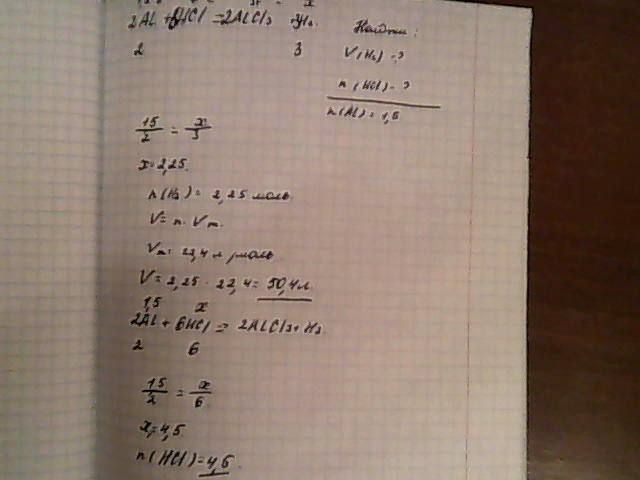 2AL + 6HCl = 2ALCl3 + 3H2
2 3
Найти:
V(H2) - ?
n(HCl) - ?
n(Al) = 1,5
15/2 = x/3
x = 2,25
n(H2) = 2,25 моль
V = n · Vm
Vm = 22,4 л/моль
V = 2,25 · 22,4 = 50,4 л
1,5 x
2Al + 6HCl = 2AlCl3 + H2
2 6
15/2 = x/6
x = 4,5
n(HCl) = 4,5